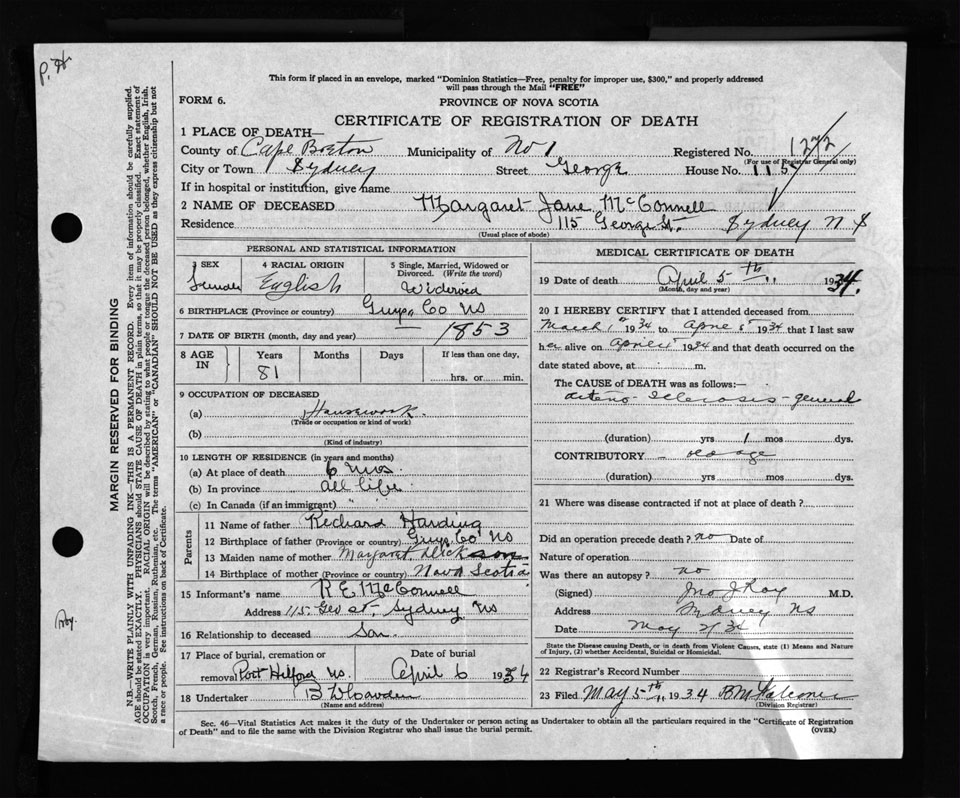 P. H
This form if placed in an envelope, marked "Dominion Statistics—Free, penalty for improper use, $300," and properly addressed
will pass through the Mail "FREE"
FORM 6.
PROVINCE OF NOVA SCOTIA
CERTIFICATE OF REGISTRATION OF DEATH
1 PLACE OF DEATH—
County of Cape Breton Municipality of No 1 Registered No. 1272
(For use of Registrar General only)
City or Town Sydney Street George House No. 115
If in hospital or institution, give name
2 NAME OF DECEASED Margaret Jane McConnell
Residence 115 George St. Sydney N.S
(Usual place of abode)
PERSONAL AND STATISTICAL INFORMATION
3 SEX 4 RACIAL ORIGIN 5 Single, Married, Widowed or Divorced. (Write the word)
English Widowed
6 BIRTHPLACE (Province or country) Guys Co NS
7 DATE OF BIRTH (month, day and year) 1853
8 AGE IN Years Months Days If less than one day,
81 hrs. or min.
9 OCCUPATION OF DECEASED
(a) Housework
(Trade or occupation or kind of work)
(b)
(Kind of industry)
10 LENGTH OF RESIDENCE (in years and months)
(a) At place of death 6 mos.
(b) In province all life
(c) In Canada (if an immigrant) "
Parents
11 Name of father Richard Harding
12 Birthplace of father (Province or country) Guys. Co NS
13 Maiden name of mother Margaret Dickson
14 Birthplace of mother (Province or country) Nova Scotia
15 Informant's name R E McConnell
Address 115 Geo St. Sydney NS
16 Relationship to deceased Son.
17 Place of burial, cremation or removal Port Hilford NS. Date of burial April 6 1934
18 Undertaker
(Name and address)
MEDICAL CERTIFICATE OF DEATH
19 Date of death April 5th 1934.
(Month, day and year)
20 I HEREBY CERTIFY that I attended deceased from
March 1st 1934 to April 5 1934 that I last saw
her alive on April 1934 and that death occurred on the
date stated above, at m.
The CAUSE OF DEATH was as follows:—
arterio-sclerosis - general
(duration) yrs 1 mos dys.
CONTRIBUTORY - old age
(duration) yrs mos dys.
21 Where was disease contracted if not at place of death?
Did an operation precede death? no Date of
Nature of operation
Was there an autopsy? no
(Signed) Jno J Roy M.D.
Address Sydney NS
Date May 2/34
State the Disease causing Death, or in death from Violent Causes, state (1) Means and Nature of Injury, (2) whether Accidental, Suicidal or Homicidal.
22 Registrar's Record Number
23 Filed May 5th 1934
(Division Registrar)
Sec. 46—Vital Statistics Act makes it the duty of the Undertaker or person acting as Undertaker to obtain all the particulars required in the "Certificate of Registration
of Death" and to file the same with the Division Registrar who shall issue the burial permit.
(OVER)
MARGIN RESERVED FOR BINDING
N.B.—WRITE PLAINLY WITH UNFADING INK—THIS IS A PERMANENT RECORD. Every item of information should be carefully supplied.
AGE should be stated EXACTLY. PHYSICIANS should STATE CAUSE OF DEATH in plain terms, so that it may be properly classified. Exact statement of
OCCUPATION is very important. RACIAL ORIGIN will be described by stating to what people or tongue the deceased person belonged, whether English, Irish,
Scotch, French, German, Russian, Ruthenian, etc. The terms "AMERICAN" or "CANADIAN" SHOULD NOT BE USED as they express citizenship but not
a race or people. See instructions on back of Certificate.